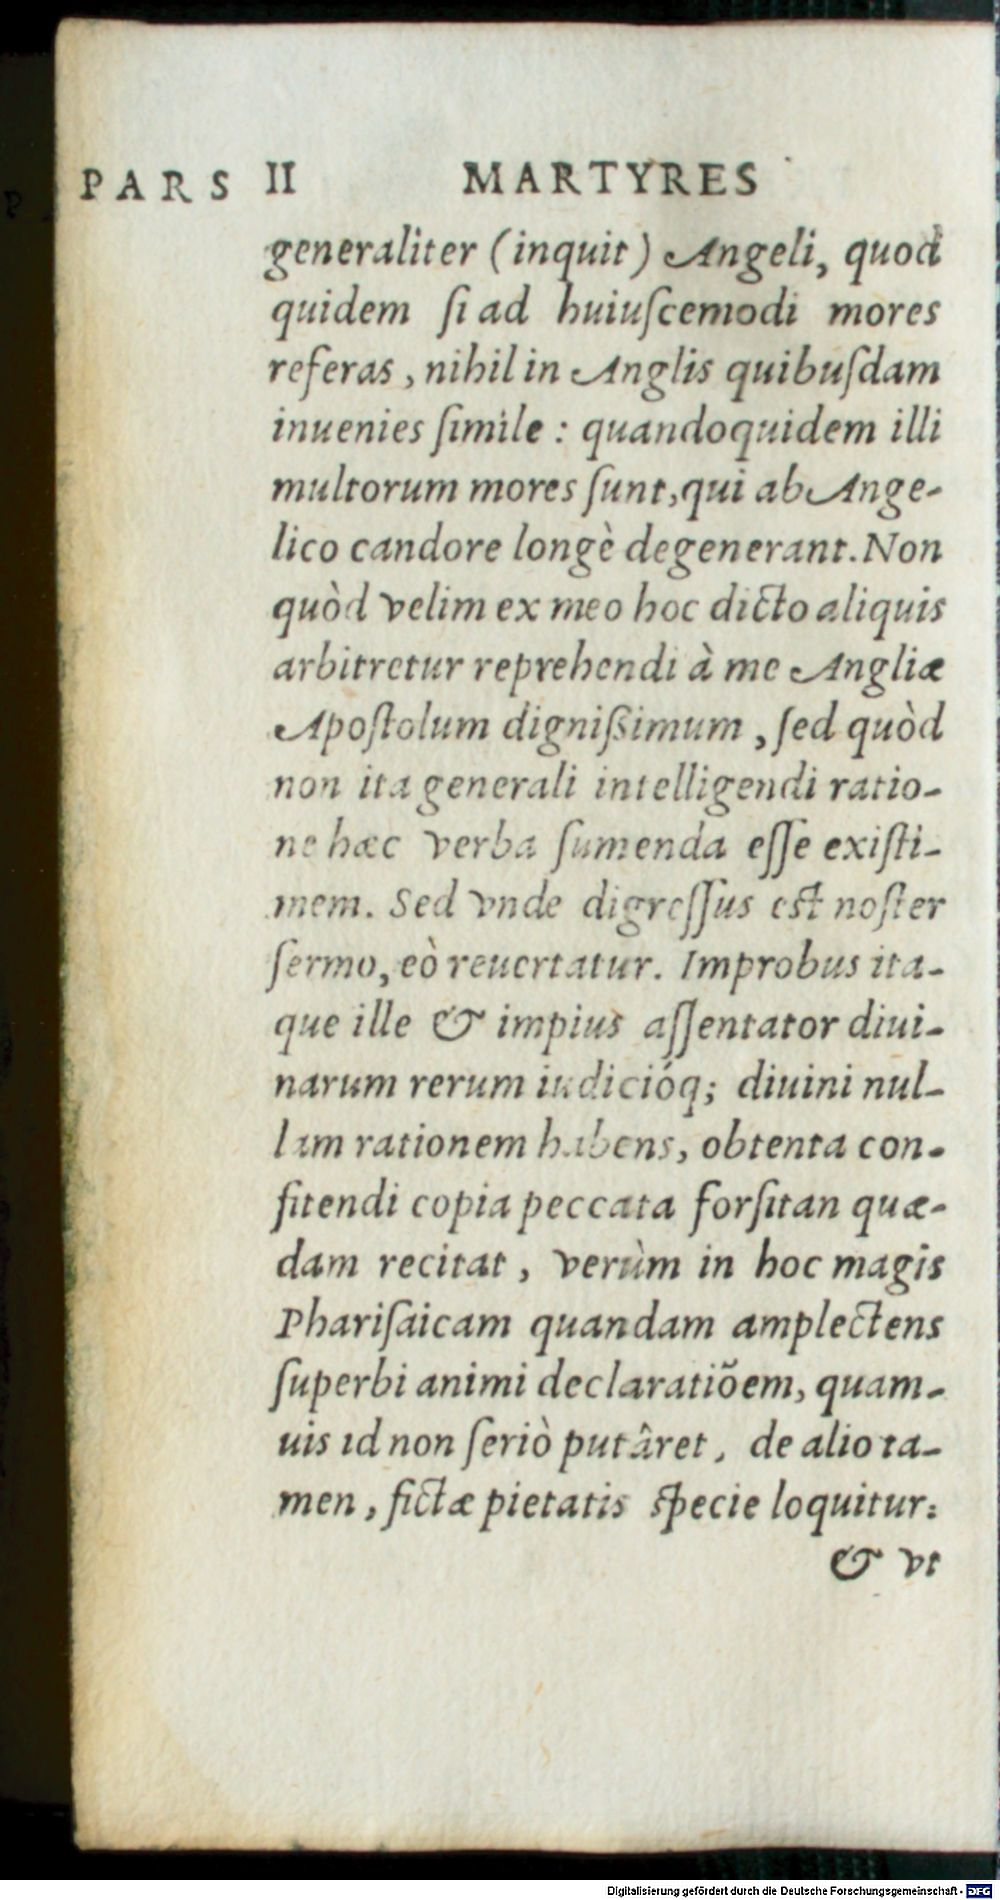 PARS II MARTYRES
generaliter (inquit) Angeli, quod
quidem ſi ad huiuſcemodi mores
referas, nihil in Anglis quibuſdam
inuenies ſimile : quandoquidem illi
multorum mores ſunt, qui ab Ange-
lico candore longè degenerant. Non
quòd velim ex meo hoc dicto aliquis
arbitretur reprehendi à me Angliæ
Apoſtolum digniſsimum, ſed quòd
non ita generali intelligendi ratio-
ne hæc verba ſumenda eſſe exiſti-
mem. Sed vnde digreſſus eſt noſter
ſermo, eò reuertatur. Improbus ita-
que ille & impius aſſentator diui-
narum rerum iudicióq; diuini nul-
lam rationem habens, obtenta con-
fitendi copia peccata forſitan quæ-
dam recitat, verùm in hoc magis
Phariſaicam quandam amplectens
ſuperbi animi declaratiõem, quam-
uis id non ſeriò putâret, de alio ta-
men, fictæ pietatis ſpecie loquitur:
& vt
Digitalisierung gefördert durch die Deutsche Forschungsgemeinschaft - DFG